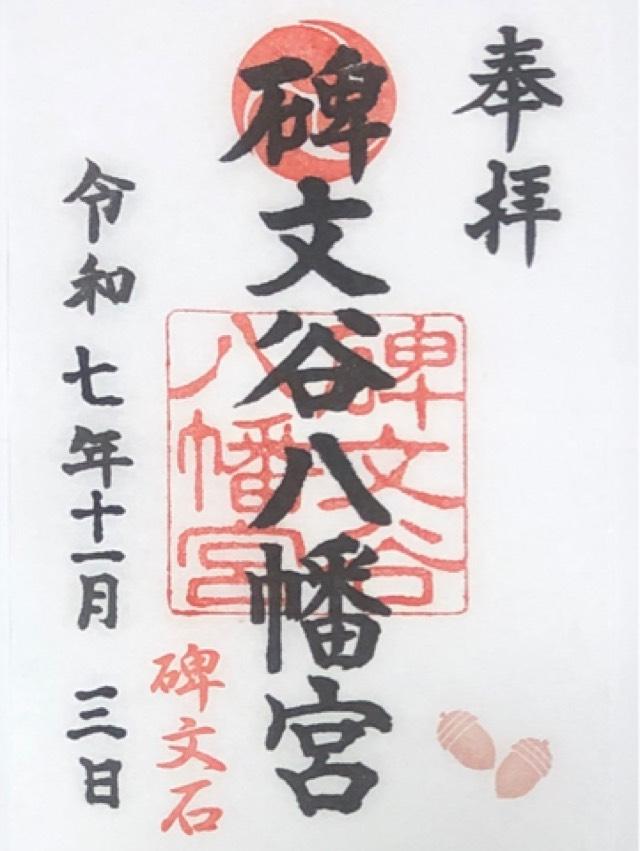 奉拝
碑文谷八幡宮
碑文谷
八幡宮
碑文石
令和七年十一月三日